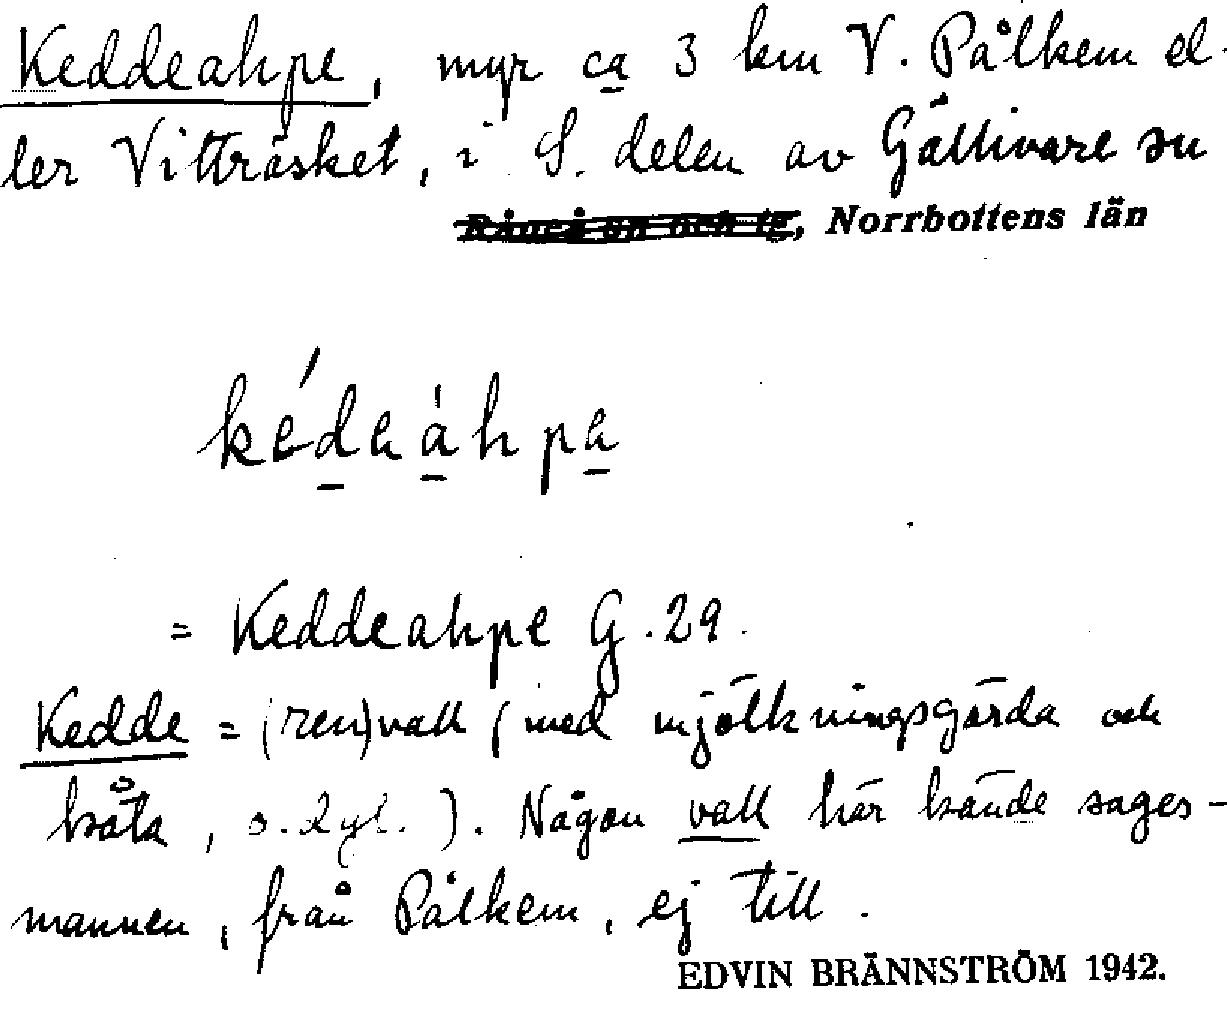 Keddeahpe, myr ca 3 km V. Pålkem el-
ler Vitträsket, i S. delen av Gällivare sn
Råneå sn och tg, Norrbottens län
kéd̲eá̲hpa̲
= Keddeahpe G.29.
Kedde = (ren)vall (med mjölkningsgärda och
kåta, o.dyl.). Någon vall här kände sages-
mannen, från Pålkem, ej till.
EDVIN BRÄNNSTRÖM 1942.